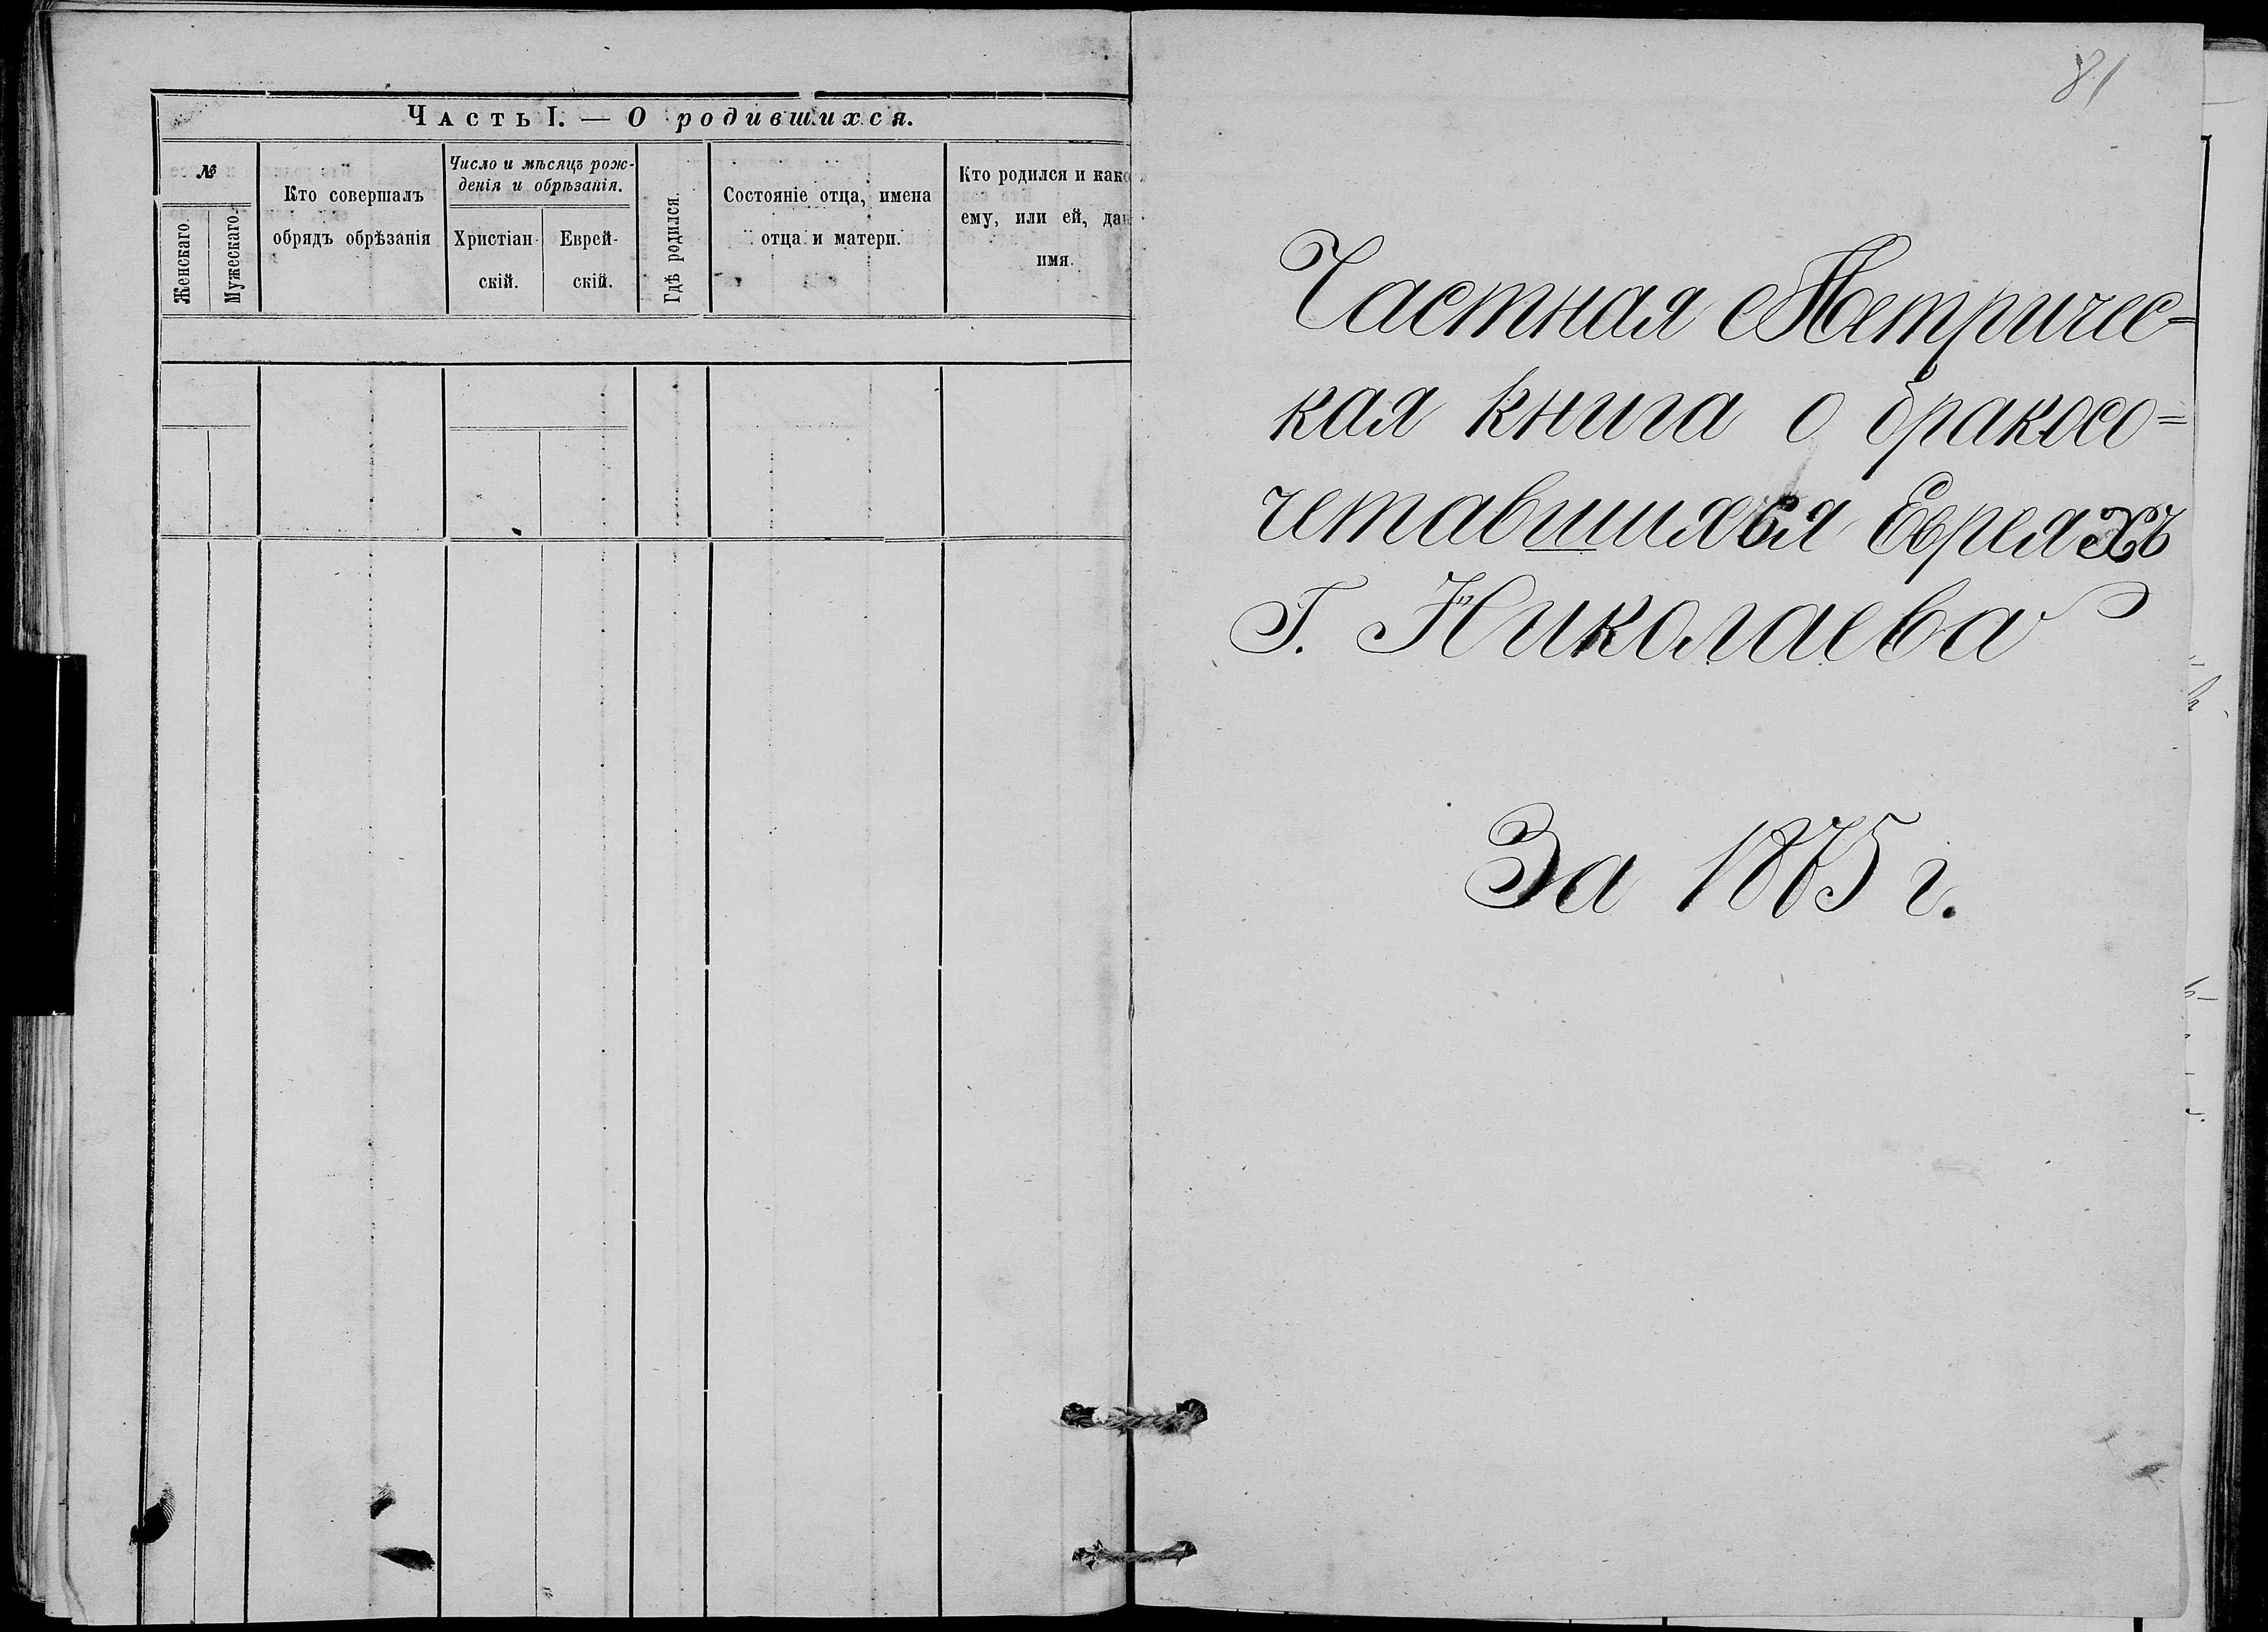 Часть I. — О родившихся.
№
Женскаго.
Мужескаго.
Кто совершалъ
обрядъ обрѣзанія
Число и мѣсяцъ рож-
денія и обрѣзанія.
Христіан-
скій.
Еврей-
скій.
Гдѣ родился.
Состояніе отца, имена
отца и матери.
Кто родился и како
ему, или ей, дан
имя.
81
Частная Метричес-
кая книга о бракосо=
четавшихся Евреяхъ
Г. Николаева
За 1875 г.